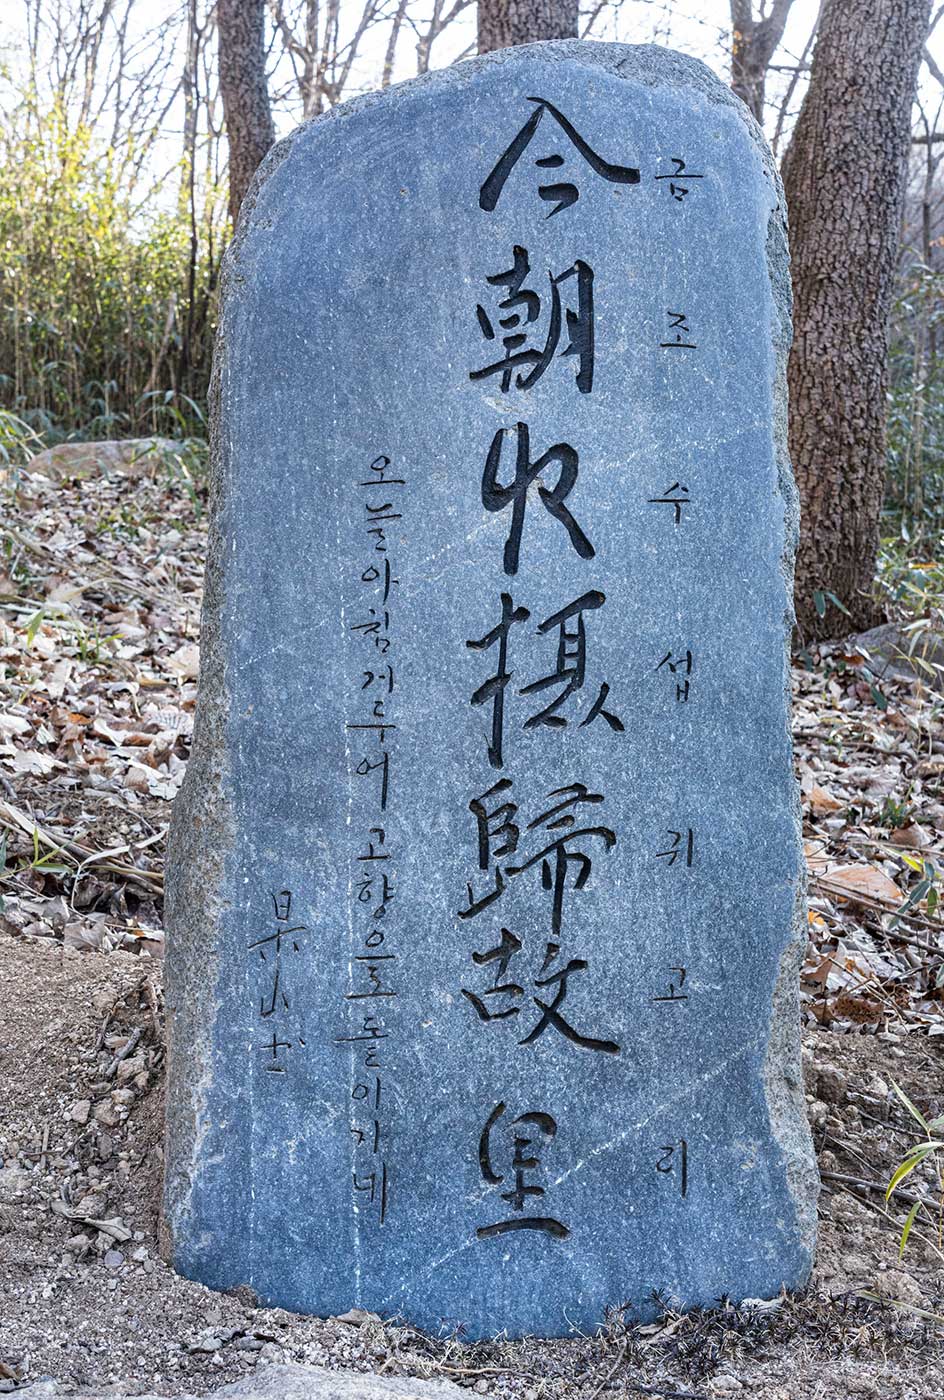 금조수섭귀고리
今朝收攝歸故里
오늘아침거두어 고향으로 돌아가네
杲山